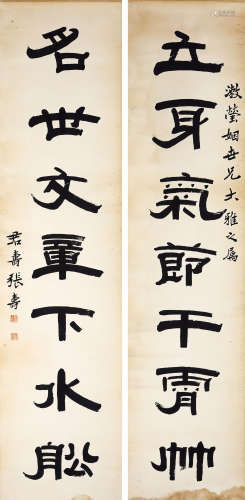 澂瑩姻世兄大雅之屬
立身氣節干霄竹
名世文章下水舩
君壽張壽